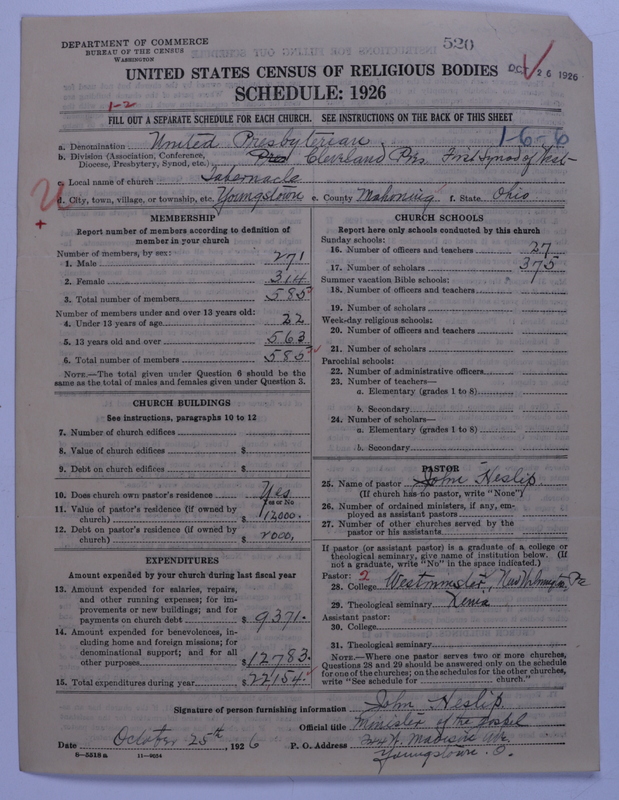 DEPARTMENT OF COMMERCE
BUREAU OF THE CENSUS
WASHINGTON
520
UNITED STATES CENSUS OF RELIGIOUS BODIES
OCT 26 1926
SCHEDULE: 1926
1-2
FILL OUT A SEPARATE SCHEDULE FOR EACH CHURCH. SEE INSTRUCTIONS ON THE BACK OF THIS SHEET
16-6
a. Denomination United Presbyterian
b. Division (Association, Conference, Diocese, Presbytery, Synod, etc.) Cleveland Pres. First Synod of West-
c. Local name of church Tabernacle
d. City, town, village, or township, etc. Youngstown e. County Mahoning f. State Ohio
MEMBERSHIP
Report number of members according to definition of
member in your church
Number of members, by sex:
1. Male 271
2. Female 314
3. Total number of members 585
Number of members under and over 13 years old:
4. Under 13 years of age 22
5. 13 years old and over 563
6. Total number of members 585
NOTE.—The total given under Question 6 should be the
same as the total of males and females given under Question 3.
CHURCH BUILDINGS
See instructions, paragraphs 10 to 12
7. Number of church edifices
8. Value of church edifices $
9. Debt on church edifices $
10. Does church own pastor's residence Yes
Yes or No
11. Value of pastor's residence (if owned by
church) $ 12000.
12. Debt on pastor's residence (if owned by
church) $ 2000,
EXPENDITURES
Amount expended by your church during last fiscal year
13. Amount expended for salaries, repairs,
and other running expenses; for im-
provements or new buildings; and for
payments on church debt $ 9371.
14. Amount expended for benevolences, in-
cluding home and foreign missions; for
denominational support; and for all
other purposes $ 12783.
15. Total expenditures during year $ 22154.
CHURCH SCHOOLS
Report here only schools conducted by this church
Sunday schools:
16. Number of officers and teachers 27
17. Number of scholars 375
Summer vacation Bible schools:
18. Number of officers and teachers
19. Number of scholars
Week-day religious schools:
20. Number of officers and teachers
21. Number of scholars
Parochial schools:
22. Number of administrative officers
23. Number of teachers—
a. Elementary (grades 1 to 8)
b. Secondary
24. Number of scholars—
a. Elementary (grades 1 to 8)
b. Secondary
PASTOR
25. Name of pastor John Heslip
(If church has no pastor, write "None")
26. Number of ordained ministers, if any, em-
ployed as assistant pastors
27. Number of other churches served by the
pastor or his assistants
If pastor (or assistant pastor) is a graduate of a college or
theological seminary, give name of institution below. (If
not a graduate, write "No" in the space indicated.)
Pastor: 2
28. College Westminster, New Wilmington, Pa
29. Theological seminary Xenia
Assistant pastor:
30. College
31. Theological seminary
NOTE.—Where one pastor serves two or more churches,
Questions 28 and 29 should be answered only on the schedule
for one of the churches; on the schedules for the other churches,
write "See schedule for church."
Signature of person furnishing information John Heslip
Official title Minister of the Gospel
Date October 25th, 1926 P. O. Address W. Madison Ave.
Youngstown. O.
8-5518a 11-9024